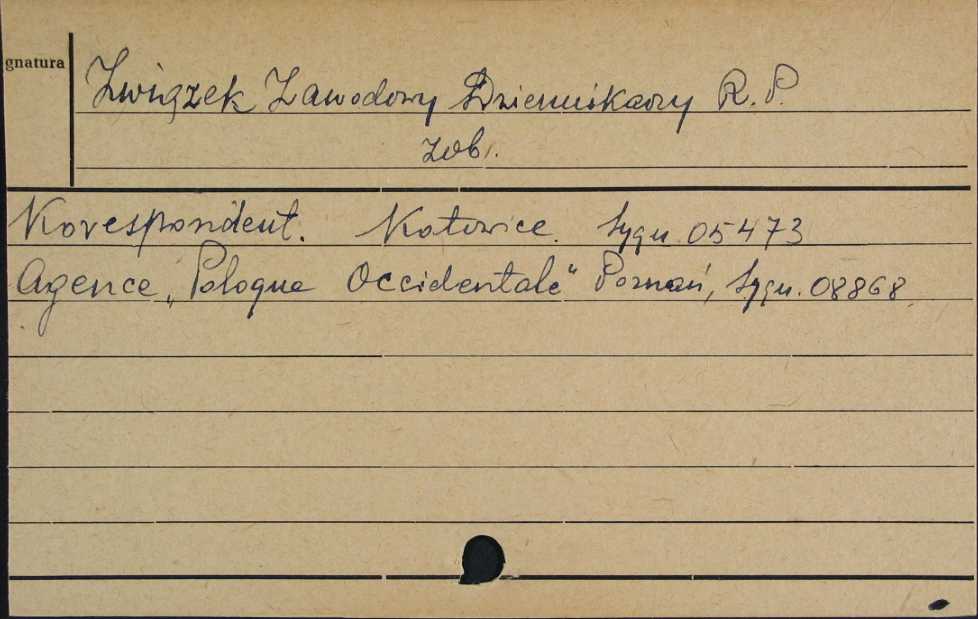 gnatura
Związek Zawodowy Dziennikarzy R.P.
zob.
Korespondent. Katowice. Sygn. 05473
Agence „Pologne Occidentale" Poznań, Sygn. 08868